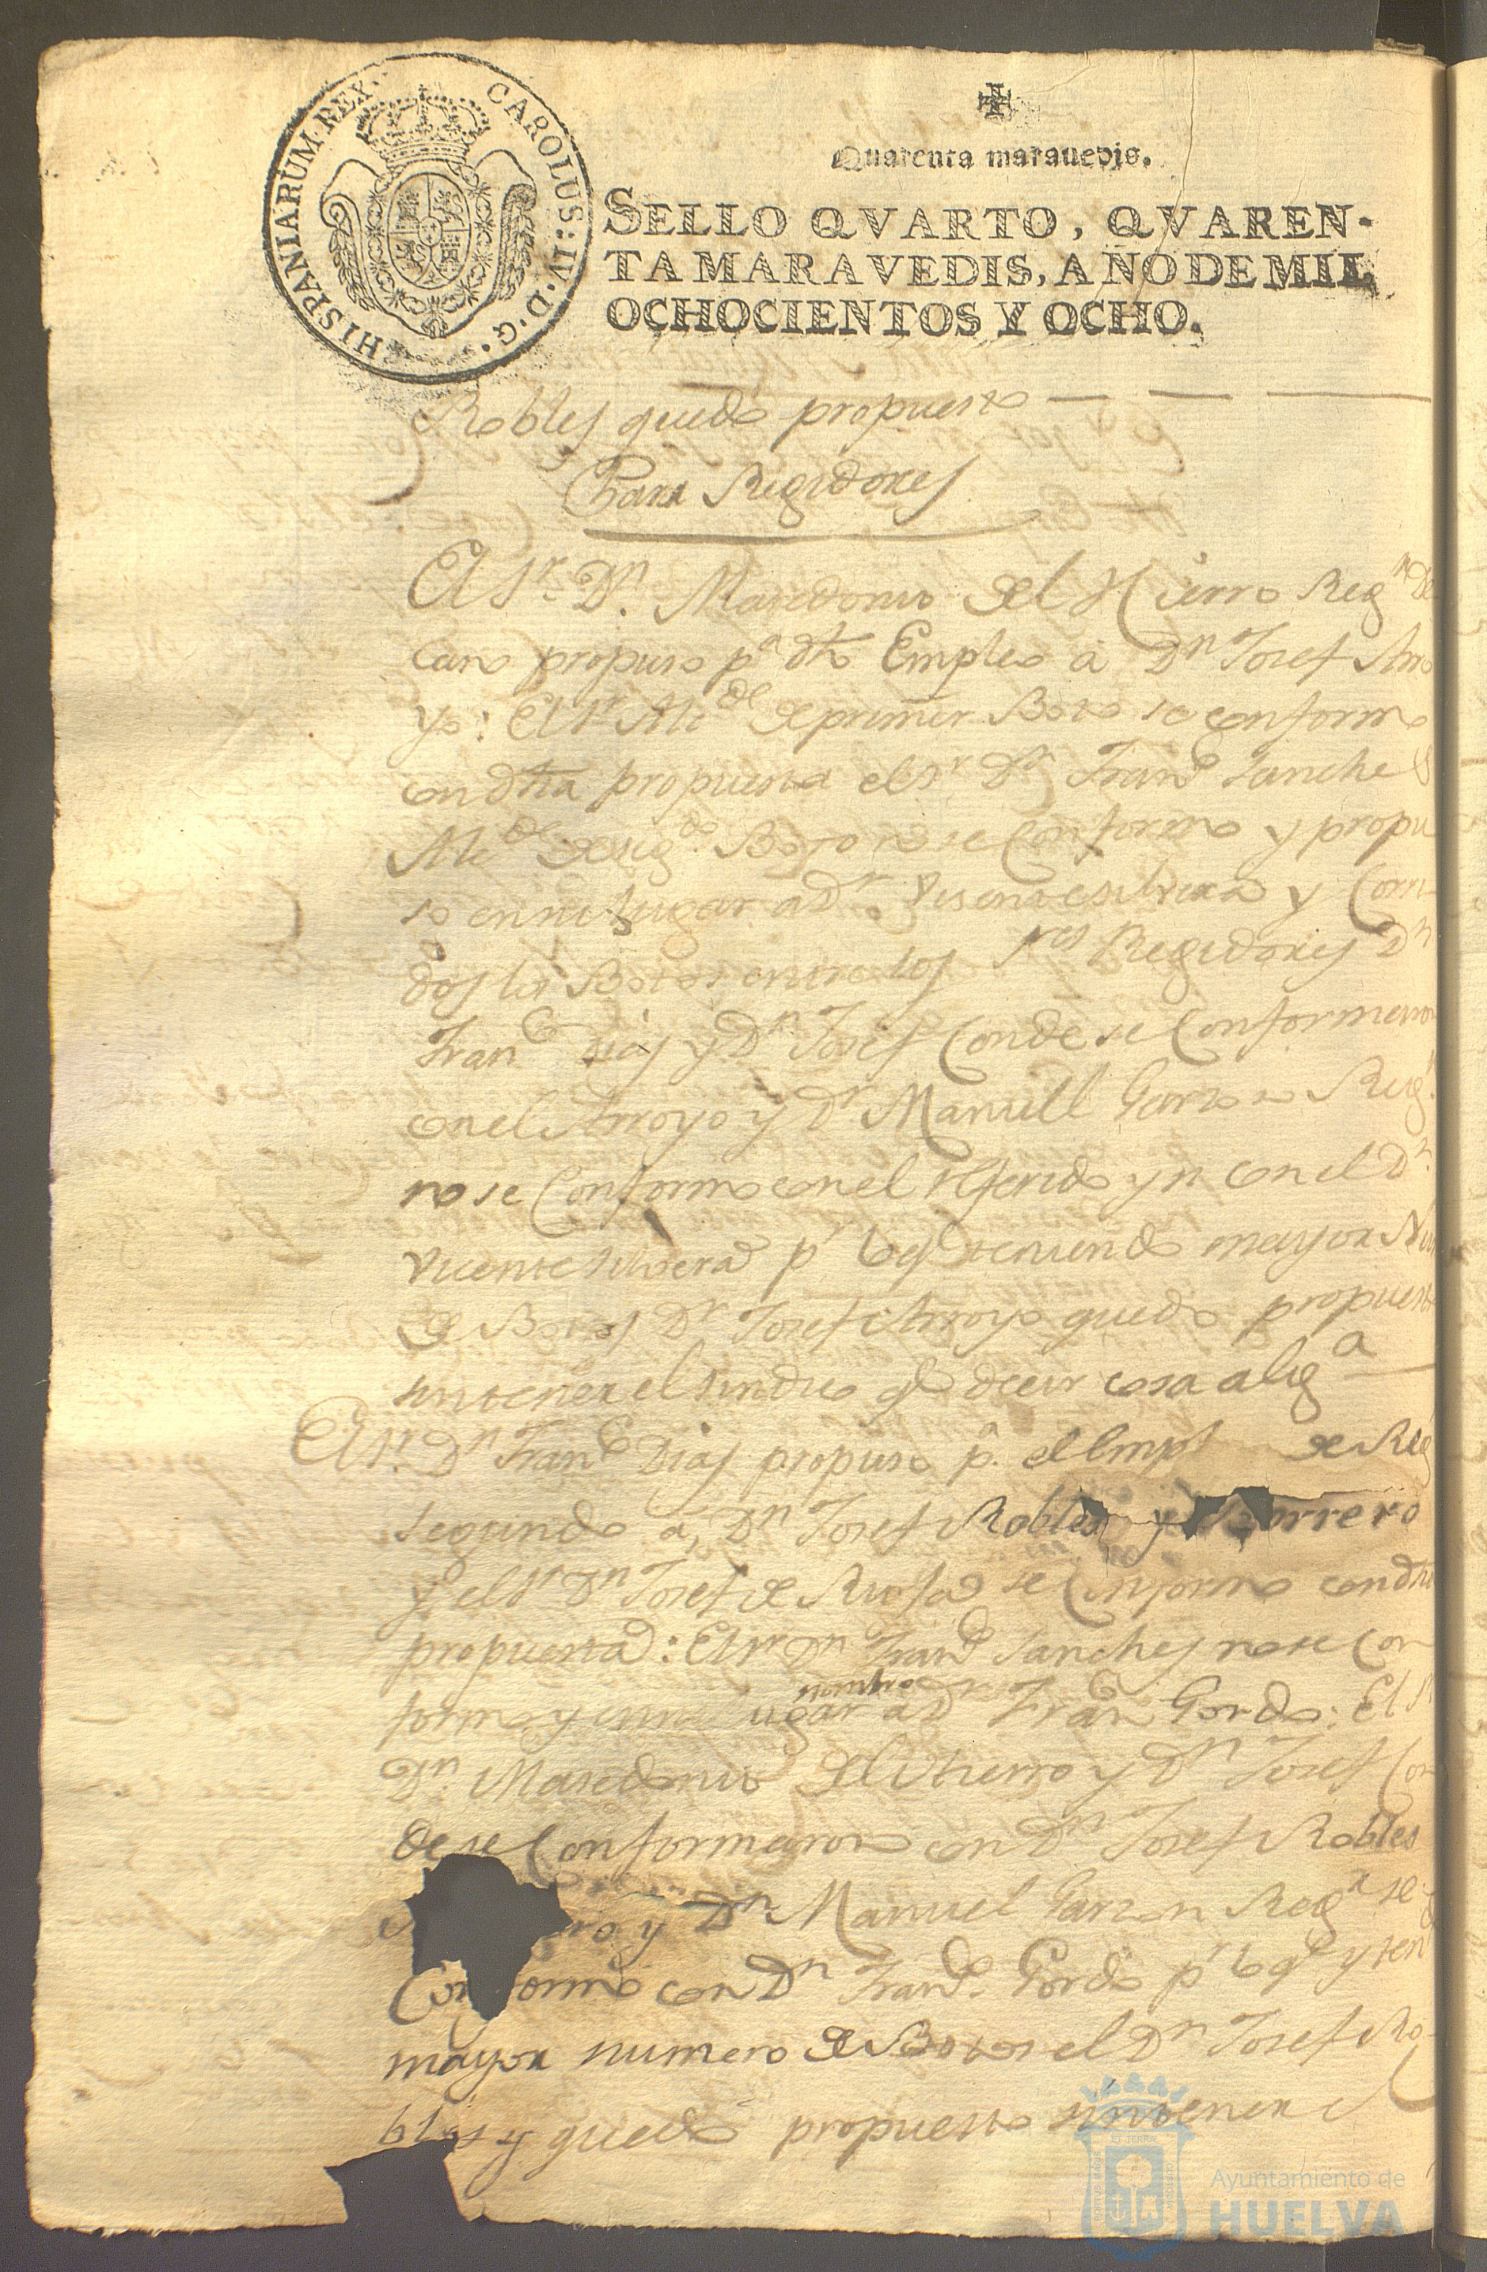 HISPANIARUM·REX· CAROLUS·IV·D·G·
Quarenta marauedis.
SELLO QVARTO, QVAREN-
TA MARAVEDIS, AÑO DE MIL
OCHOCIENTOS Y OCHO.
Robles quedo propuesto
Para Regidores
El Sr. Dn. Masedonio del Hierro Regr. De
cano propuso pa. dho Empleo a Dn Josef Arro
yo: El Sr Alcde de primer Boto se conformo
con dha propuesta el Sr Dn Franco Sanches
Alcde de segdo Boto no se Conformo y propu
so en su lugar a Dn. Visente silvera y Corri
dos los Botos entre los Sres Regidores Dn
Franco Dias y Dn Josef Conde se Conformaron
con el Arroyo y Dn Manuel Garzon Regr.
no se Conformo con el referido y si con el Dn.
Vicente silvera pr lo q teniendo mayor Nu
de Botos Dn Josef Arroyo quedo propuesto
sin tener el sindico q decir cosa alga
El Sr. Dn Franco Dias propuso pa. el Empl de Reg
segundo a Dn Josef Robles y Borrero
y el Sr Dn Josef de Rioja se Conformo con dha
propuesta: El Sr Dn Franco Sanches no se Con
formo y en su lugar nombro a Dn Franco Gordo: El S
Dn. Masedonio del Hierro y Dn Josef Con
de se Conformaron con Dn Josef Robles
ro y Dn Manuel Garzon Regr se
Conformo con Dn Franco. Gordo pr lo q y ten
mayor numero de Botos el Dn Josef Ro-
bles y quedo propuesto sin tener
Ayuntamiento de
HUELVA